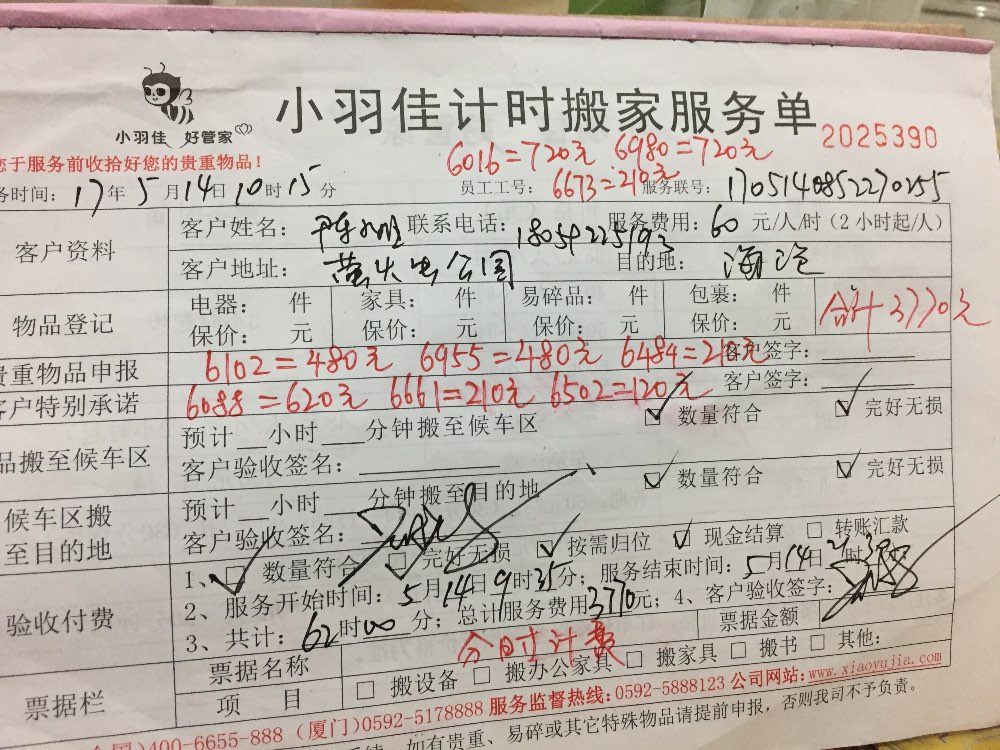 小羽佳 好管家
小羽佳计时搬家服务单
2025390
您于服务前收拾好您的贵重物品！
6016=720元 6980=720元
务时间：17年5月14日10时15分 员工工号： 6673=210元 服务联号：1705140852270255
客户资料
客户姓名： 联系电话：18054225193 服务费用：60元/人/时（2小时起/人）
客户地址：萤火虫公园 目的地：海沧
物品登记
电器： 件 家具： 件 易碎品： 件 包裹： 件
保价： 元 保价： 元 保价： 元 保价： 元
合计 3770元
贵重物品申报 6102=480元 6955=480元 6484=210元 客户签字：
客户特别承诺 6088=620元 6661=210元 6502=120元 客户签字：
品搬至候车区
预计 小时 分钟搬至候车区 数量符合 完好无损
客户验收签名：
候车区搬至目的地
预计 小时 分钟搬至目的地 数量符合 完好无损
客户验收签名：
验收付费
1、 数量符合 完好无损 按需归位 现金结算 转账汇款
2、服务开始时间：5月14日9时35分；服务结束时间：5月14日 时
3、共计：62时00分；总计服务费用3770元；4、客户验收签字：
分时计费
票据栏
票据名称 票据金额
项 目 搬设备 搬办公家具 搬家具 搬书 其他：
400-6655-888（厦门）0592-5178888 服务监督热线：0592-5888123 公司网站：www.xiaoyujia.com
如有贵重、易碎或其它特殊物品请提前申报，否则我司不予负责。